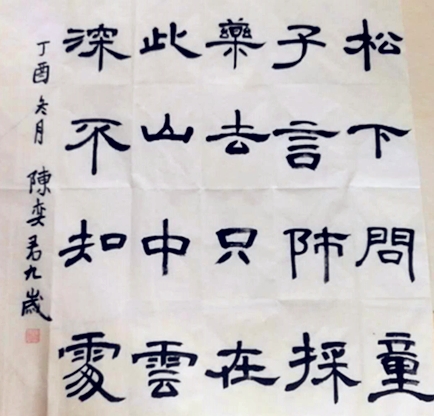 松下問童
子言師採
藥去只在
此山中雲
深不知處
丁酉冬月 陳奕君九歲